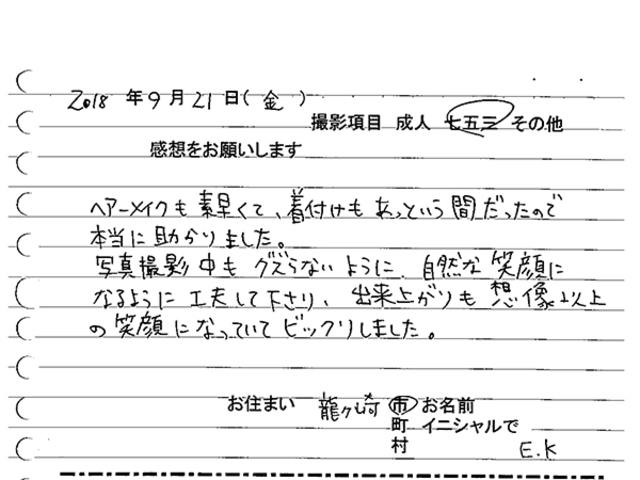 2018 年9月21日(金)
撮影項目 成人 七五三 その他
感想をお願いします
ヘアーメイクも素早くて、着付けもあっという間だったので
本当に助かりました。
写真撮影中もグズらないように、自然な笑顔に
なるように工夫して下さり、出来上がりも想像以上
の笑顔になっていてビックリしました。
お住まい 龍ヶ崎 市 お名前
町 イニシャルで
村 E.K